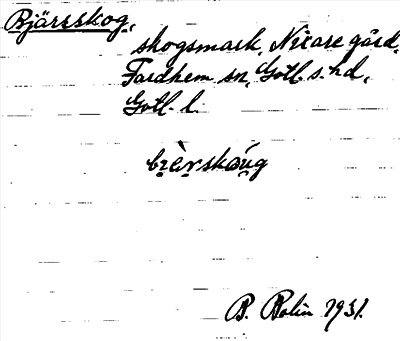 Bjärsskog,
skogsmark, Nitare gård,
Fardhem sn, Gotl. s. hd,
Gotl. l.
bi̯èrskåu̯g
G. Bolin 1931.